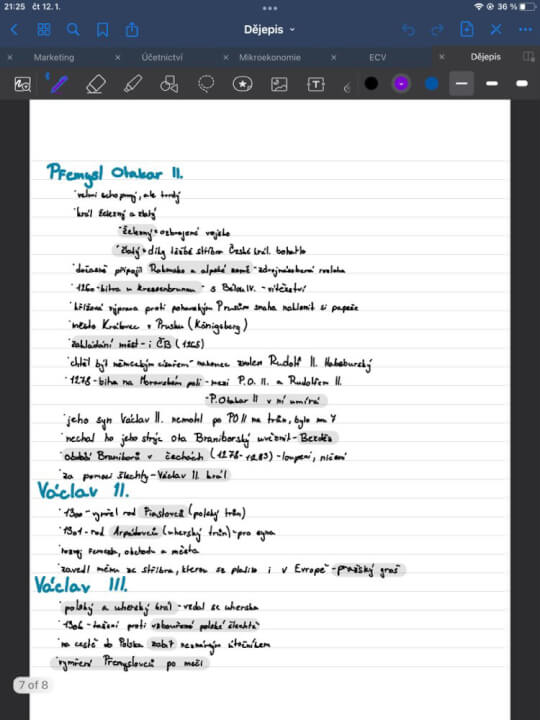 21:25 čt 12. 1.
36 %
Dějepis
Marketing
Účetnictví
Mikroekonomie
ECV
Dějepis
Přemysl Otakar II.
velmi schopný, ale tvrdý
král železný a zlatý
železný = ozbrojené vojsko
zlatý = díky těžbě stříbra České král. bohatlo
dočasně připojil Rakousko a alpské země - zdroj rozloha
1260 - bitva u Kressenbrunnu - s Bélou IV. - vítězství
křížová výprava proti pohanským Prusům snaha naklonit si papeže
město Královec v Prusku (Königsberg)
zakládání měst - i ČB (1265)
chtěl být německým císařem - nakonec zvolen Rudolf II. Habsburský
1278 - bitva na Moravském poli - mezi P.O. II. a Rudolfem II.
- P. Otakar II v ní umírá
jeho syn Václav II. nemohl po PO II na trůn, bylo mu 7
nechal ho jeho strýc Ota Braniborský uvěznit - Bezděz
období Braniborů v čechách (1278 - 1283) - loupení, ničení
za pomoci šlechty - Václav II. král
Václav II.
1300 - vymřel rod Piastovců (polský trůn)
1301 - rod Arpádovců (uherský trůn) - pro syna
rozvoj řemesla, obchodu a města
zavedl měnu ze stříbra, kterou se platilo i v Evropě - pražský groš
Václav III.
polský a uherský král - vzdal se uherska
1306 - tažení proti vzbouřené polské šlechtě
na cestě do Polska zabit neznámým útočníkem
vymření Přemyslovců po meči
7 of 8